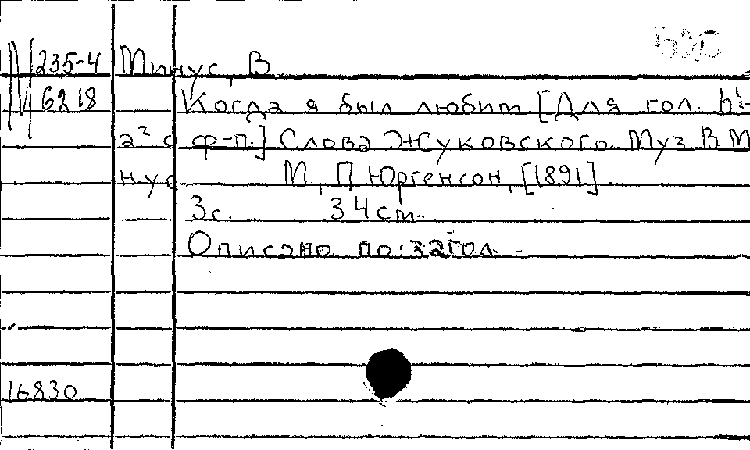 235-4 Минус, В.
6218 Когда я был любим [Для гол. h¹-
a² с ф-п.] Слова Жуковского. Муз В. Ми
нус М., П. Юргенсон, [1891]
3 с. 34 см.
Описано по: загол.
16830